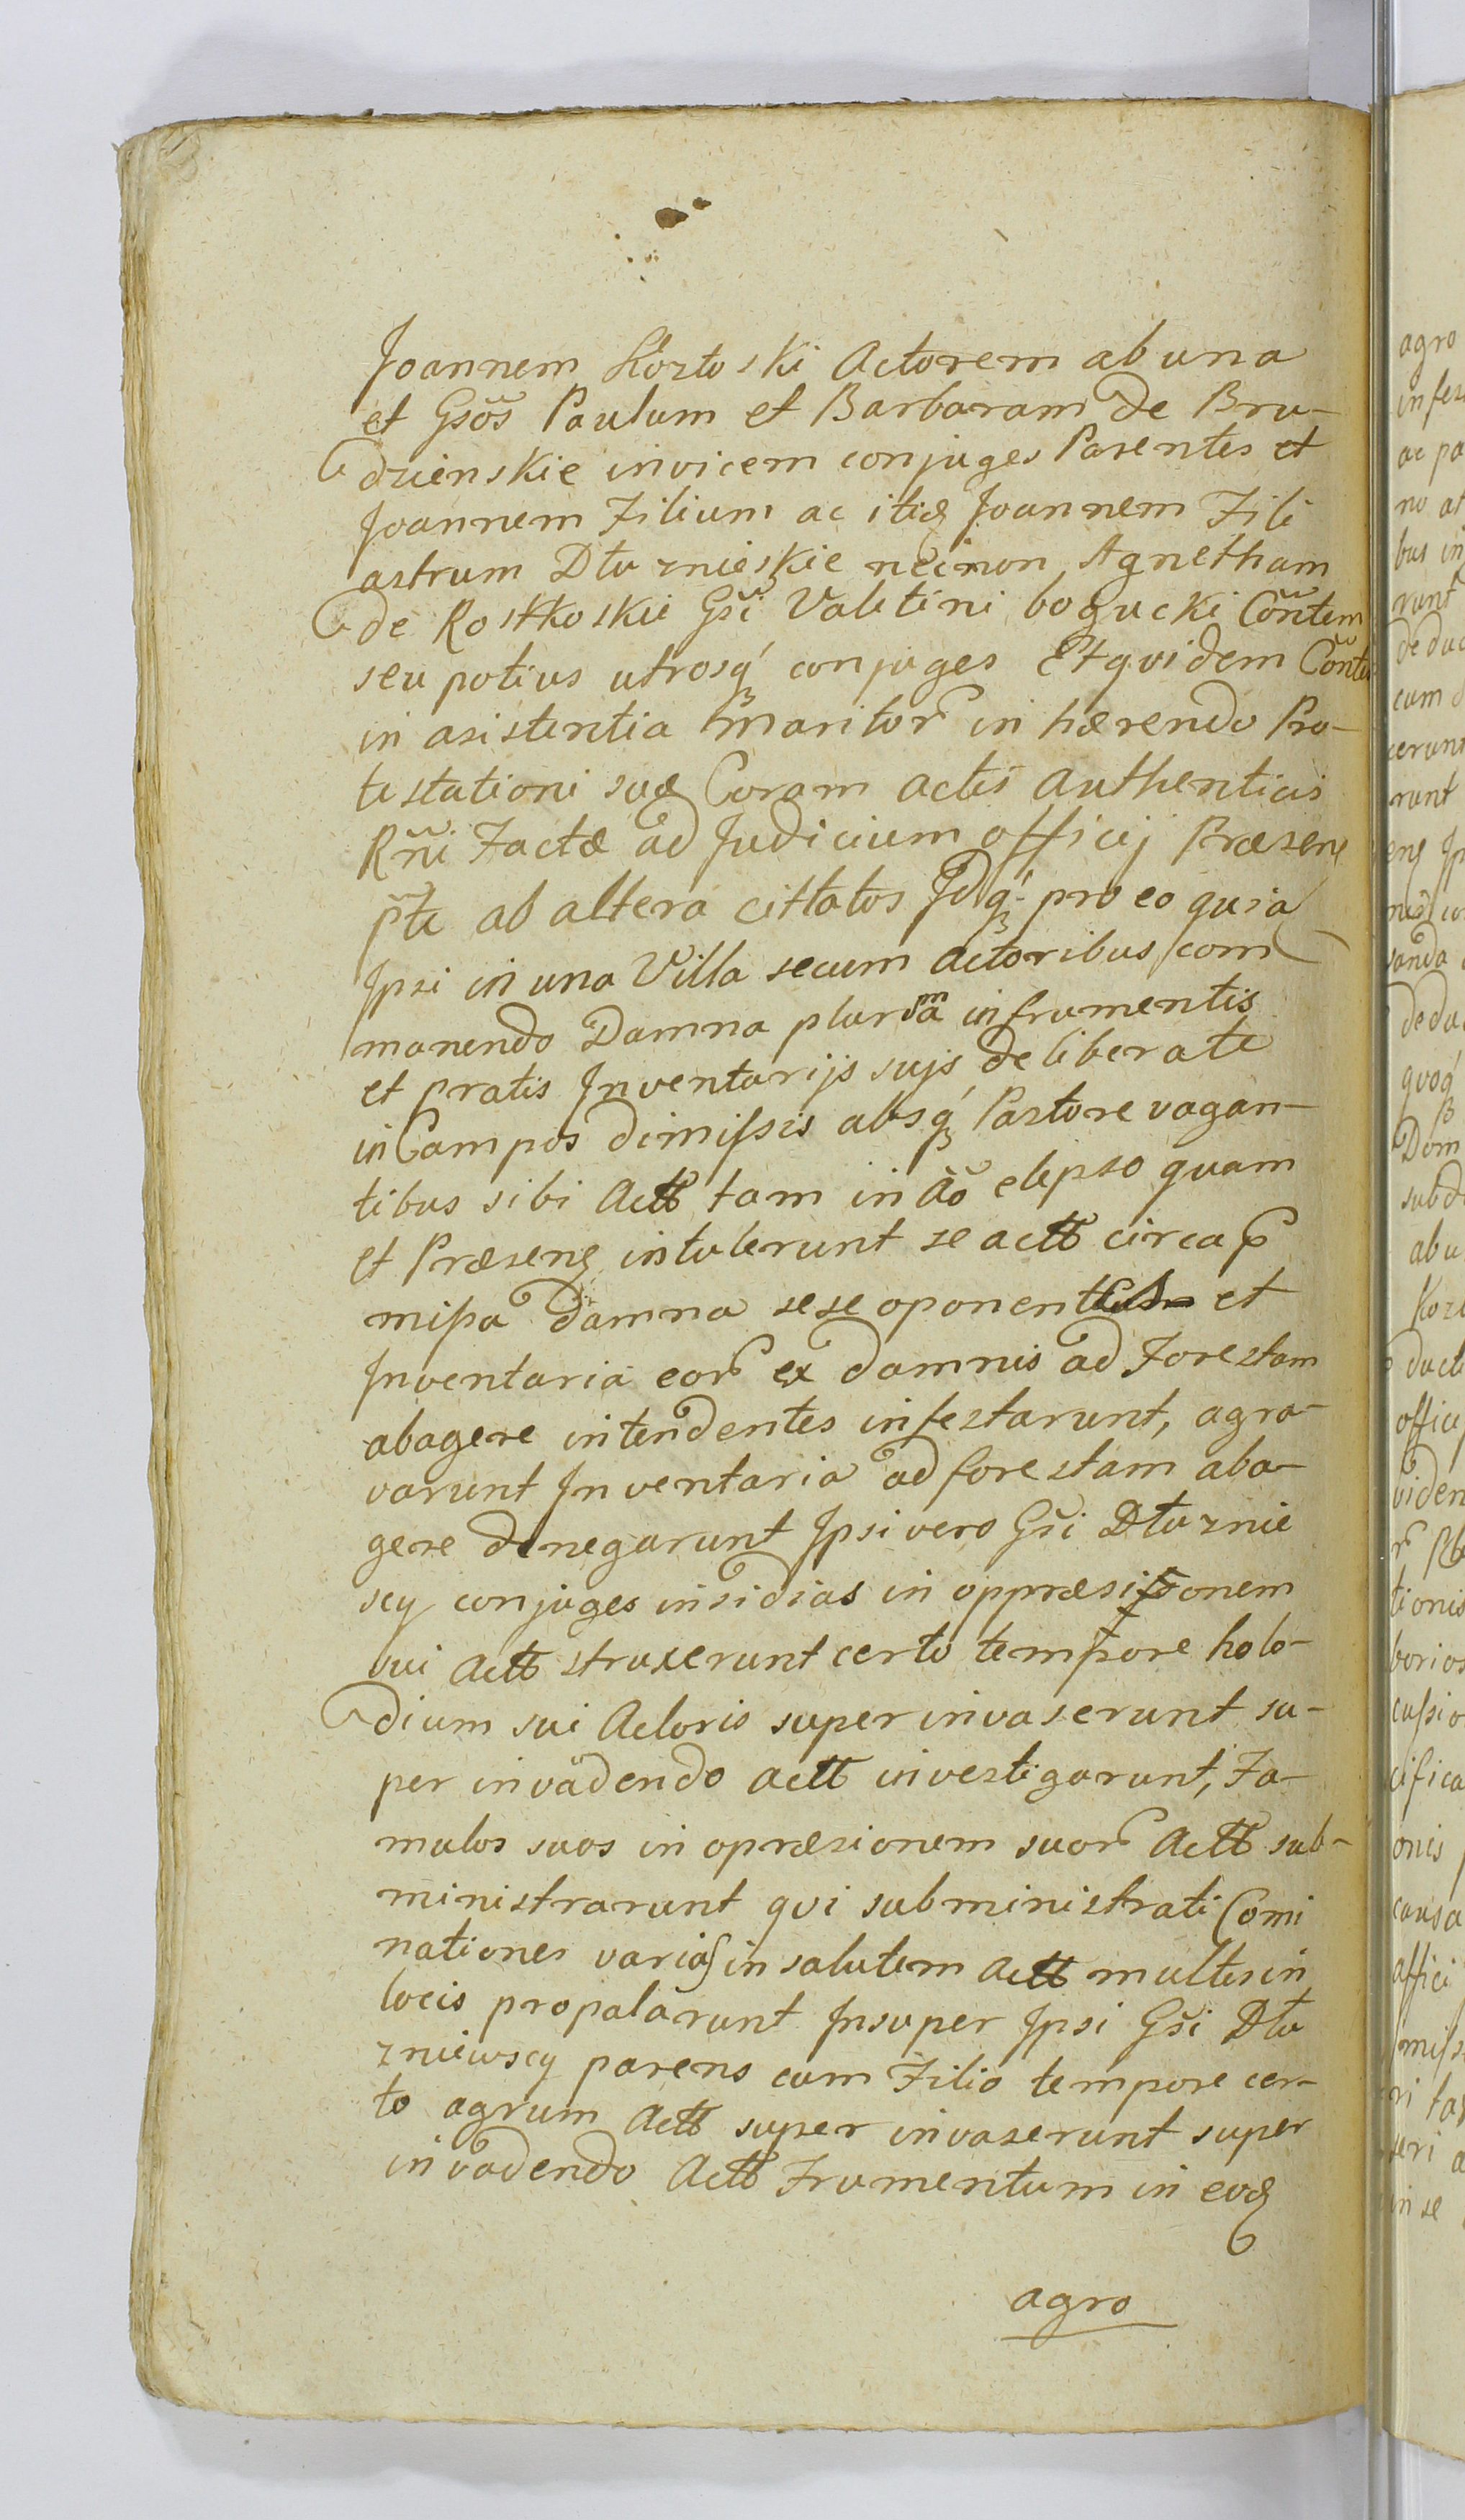 Joannem Kozłoski Actorem ab una
et Gsõs Paulum et Barbaram de Bru-
dzienskie invicem conjuges Parentes et
Joannem Filium ac itiꝫ Joannem Fili
astrum Dłuznieskie necnon Agnetham
de Rostkoskie Gsi Valetini bogucki Cõntem
seu potius utrosq́ conjuges Et quidem Cõnte
in asistentia maritor in hærendo Pro-
testationi suæ Coram actis authenticis
Rñi Factæ ad Judicium officij Præsens
p̃te ab altera cittatos Idq́ pro eo quia
Ipsi in una Villa secum actoribus com
manendo Damna plurima in frumentis
et pratis Inventarijs sujs deliberate
in Campos dimissis absq́ Pastore vagan-
tibus sibi Actt tam in Aõ elepso quam
et Præsens intulerunt se actt circa p
missa damna sese oponentes et
Inventaria eor ex damnis ad Forestam
abagere intendentes infestarunt, agra-
varunt Inventaria ad forestam aba-
gere denegarunt Ipsi vero Gsi Dłuznie
scy conjuges insidias in oppræsisionem
sui Actt struxerunt certo tempore holo-
dium sui Actoris superinvaserunt su-
per invadendo actt investigarunt, Fa-
mulos suos in opræsionem suor Actt sub-
ministrarunt qvi subministrati Comi
nationes varias in salutem Actt multis in
locis propalarunt Insuper Ipsi Gsi Dłu
zniewscy parens cum Filio tempore cer-
to agrum Actt super invaserunt super
invadendo Actt Frumentum in eodꝫ
agro